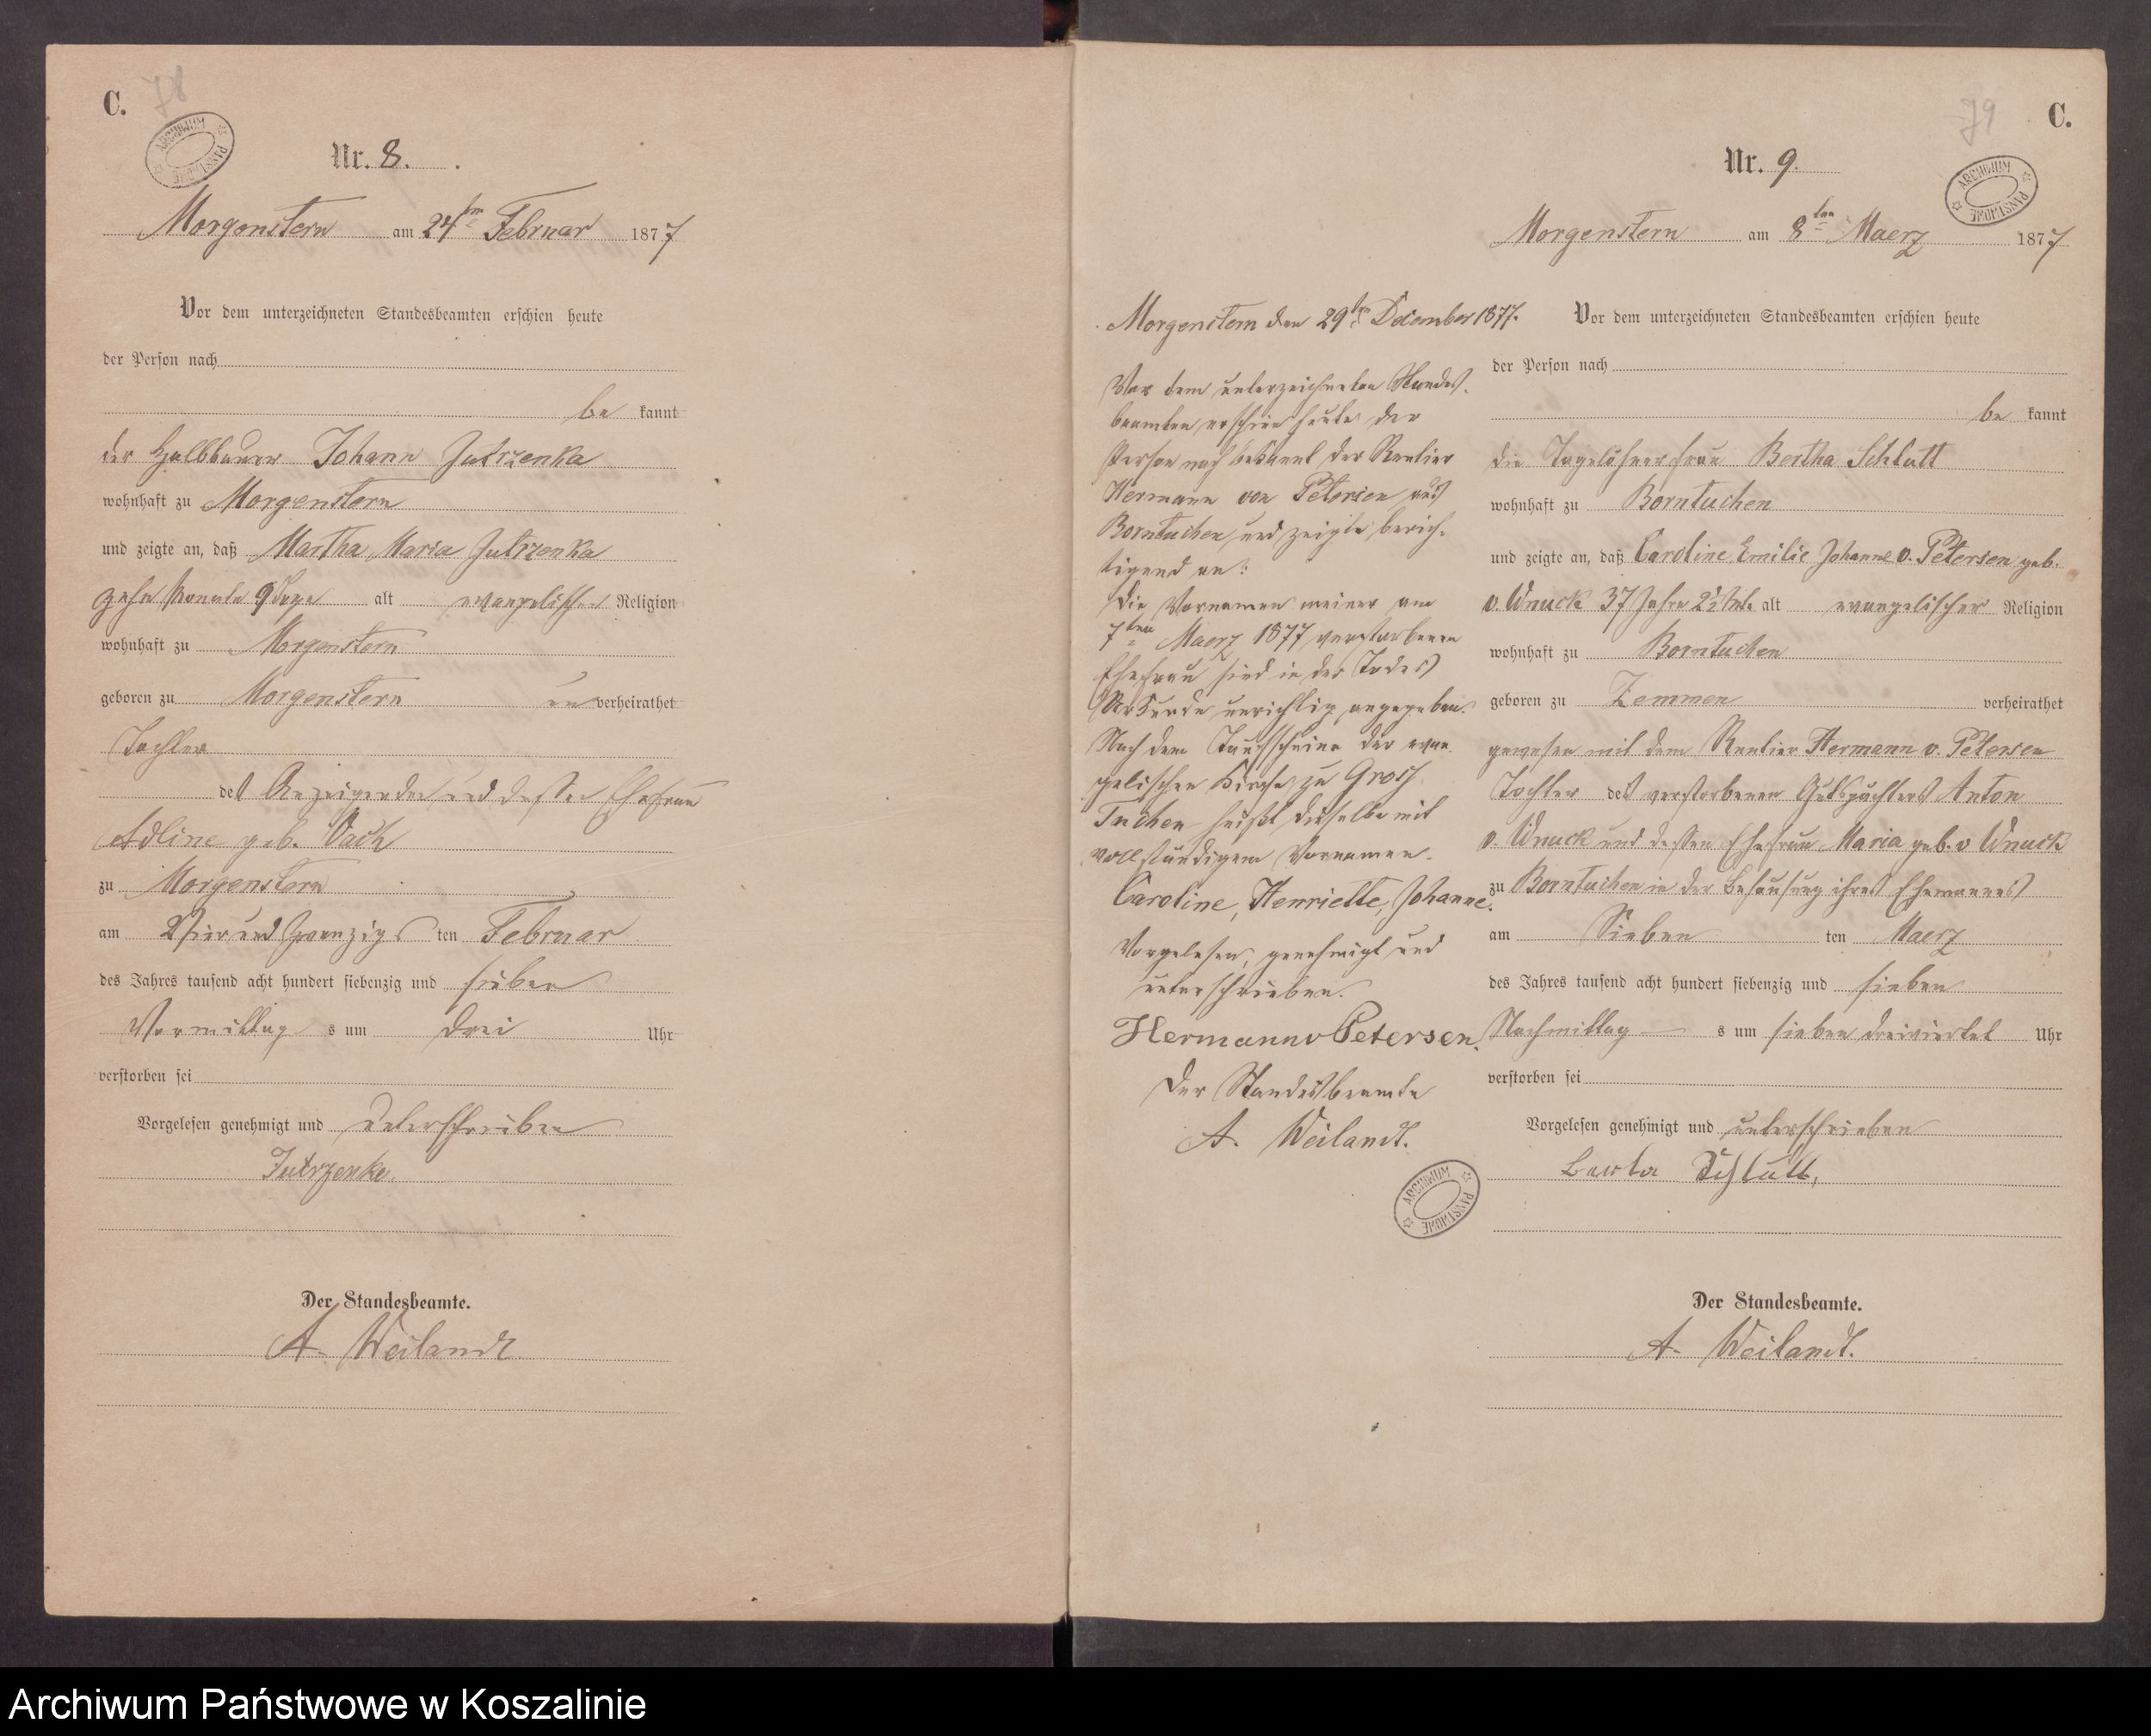 C.
78
ARCHIWUM PAŃSTWOWE
Nr. 8.
Morgenstern am 24ten Februar 1877
Vor dem unterzeichneten Standesbeamten erschien heute
der Person nach
be kannt
der Halbbauer Johann Jutrzenka
wohnhaft zu Morgenstern
und zeigte an, daß Martha Maria Jutrzenka
zehn Monate 9 Tage alt evangelischer Religion
wohnhaft zu Morgenstern
geboren zu Morgenstern un verheirathet
Tochter
des Anzeigenden und dessen Ehefrau
Adline geb. Vach
zu Morgenstern
am Vier und zwanzigs ten Februar
des Jahres tausend acht hundert siebenzig und sieben
Vormittag s um drei Uhr
verstorben sei
Vorgelesen genehmigt und unterschrieben
Jutrzenka.
Der Standesbeamte.
A. Weilandt.
C.
79
ARCHIWUM PAŃSTWOWE
Nr. 9.
Morgenstern am 8ten Maerz 1877
Vor dem unterzeichneten Standesbeamten erschien heute
der Person nach
be kannt
die Tagelöhnerfrau Bertha Schlutt
wohnhaft zu Borntuchen
und zeigte an, daß Caroline Emilie Johanne v. Petersen geb.
v. Wnuck 37 Jahre 2½ Mte alt evangelischer Religion
wohnhaft zu Borntuchen
geboren zu Zemmen verheirathet
gewesen mit dem Rentier Hermann v. Petersen
Tochter des verstorbenen Gutspächters Anton
v. Wnuck und dessen Ehefrau Maria geb. v Wnuck
zu Borntuchen in der Behausung ihres Ehemannes
am Sieben ten Maerz
des Jahres tausend acht hundert siebenzig und sieben
Nachmittag s um sieben dreiviertel Uhr
verstorben sei
Vorgelesen genehmigt und unterschrieben
Berta Schlutt,
Der Standesbeamte.
A. Weilandt.
Morgenstern den 29ten December 1877.
Vor dem unterzeichneten Standes-
beamten erschien heute der
Person nach bekannt der Rentier
Hermann von Petersen aus
Borntuchen und zeigte berich-
tigend an:
Die Vornamen meiner am
7ten Maerz 1877 verstorbenen
Ehefrau sind in der Todes
Urkunde unrichtig angegeben.
Nach dem Taufscheine der evan-
gelischen Kirche zu Gross
Tuchen heißt dieselbe mit
vollständigem Vornamen.
Caroline, Henriette, Johanne.
Vorgelesen, genehmigt und
unterschrieben.
Hermann v Petersen.
Der Standesbeamte
A. Weilandt.
ARCHIWUM PAŃSTWOWE
Archiwum Państwowe w Koszalinie